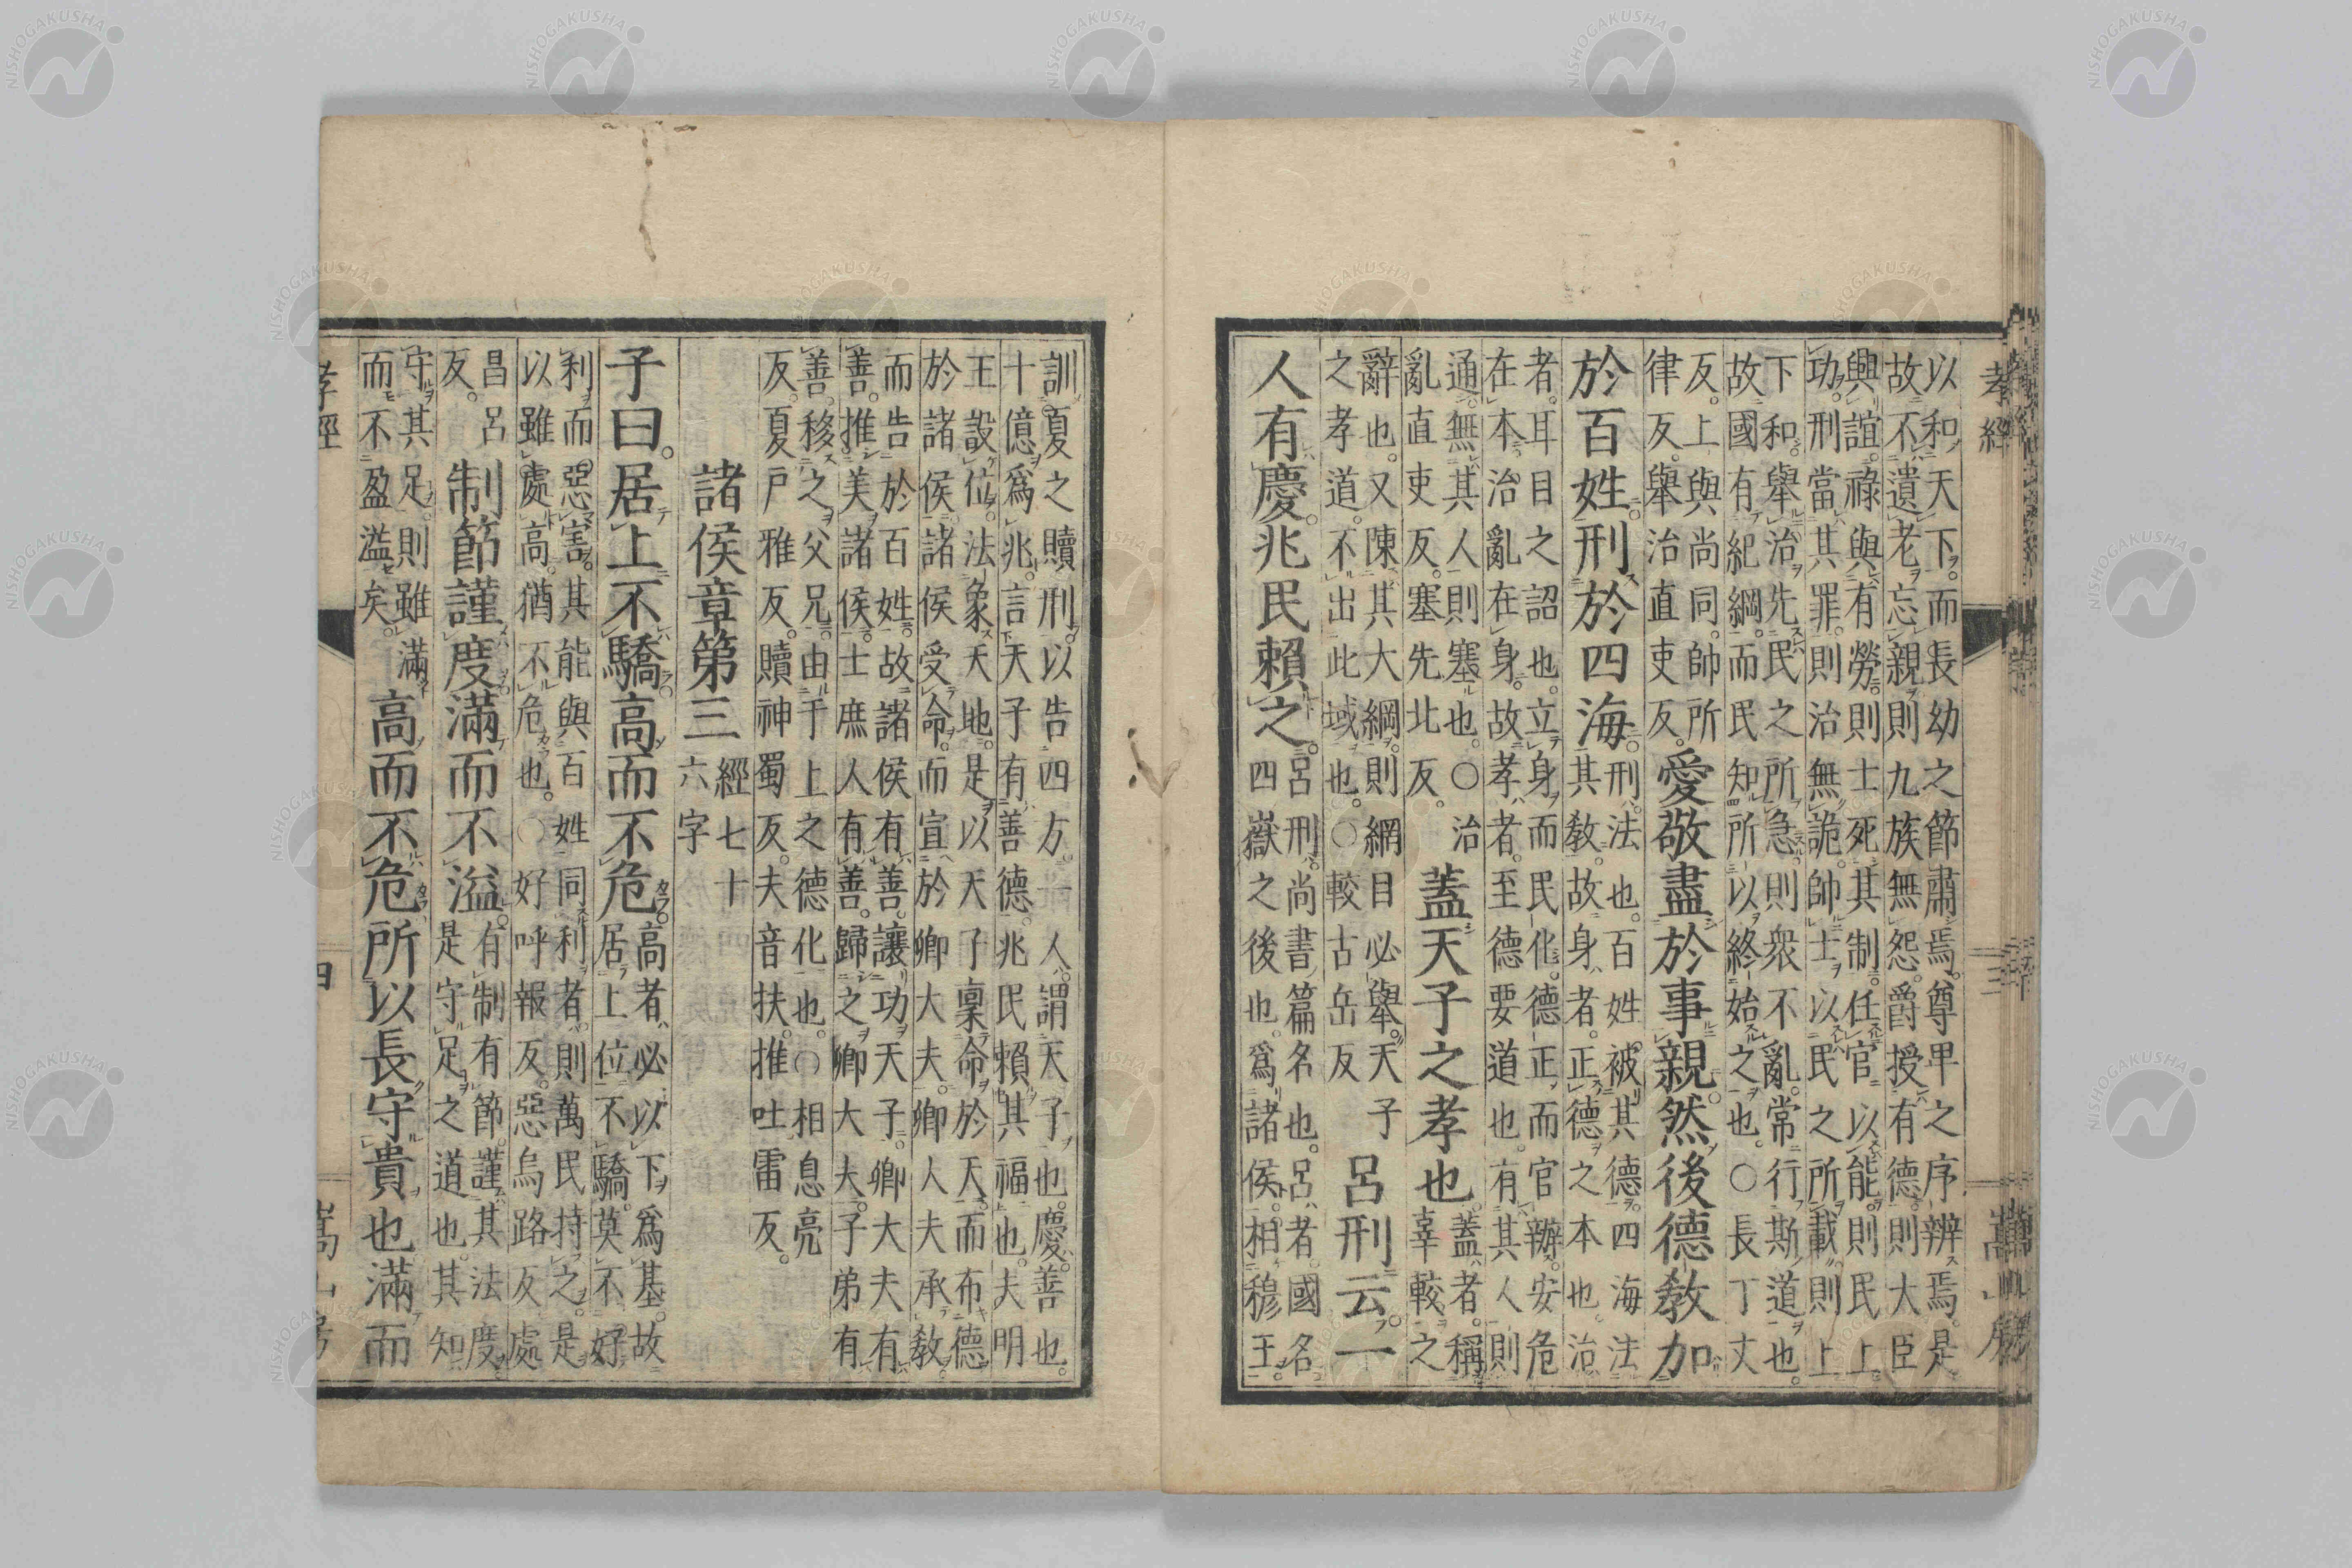 孝經 三 嵩山房
以和天下。而長幼之節肅焉。尊卑之序辨焉。是
故不遺老忘親則九族無怨。爵授有德則大臣
興誼。祿與有勞則士死其制。任官以能則民上
功。刑當其罪。則治無詭。帥士以民之所載則上
下和。舉治先民之所急。則衆不亂。常行斯道也。
故國有紀綱。而民知所以終始之也。○長丁丈
反。上與尚同。帥所
律反。舉治直吏反。
愛敬盡於事親。然後德教加
於百姓。刑於四海。
刑法也。百姓被其德。四海法
其教。故身者。正德之本也。治
者。耳目之詔也。立身而民化。德正而官辦。安危
在本。治亂在身。故孝者。至德要道也。有其人則
通。無其人則塞也。○治
亂直吏反。塞先北反。
蓋天子之孝也
蓋者。稱
辜較之
辭也。又陳其大綱。則網目必舉。天子
之孝道。不出此域也。○較古岳反
呂刑云。一
人有慶。兆民賴之。
呂刑。尚書篇名也。呂者。國名。
四嶽之後也。爲諸侯。相穆王。
訓夏之贖刑。以告四方。一人。謂天子也。慶。善也。
十億爲兆。言天子有善德。兆民賴其福也。夫明
王設位。法象天地。是以天子稟命於天。而布德
於諸侯。諸侯受命。而宣於卿大夫。卿大夫承教
而告於百姓。故諸侯有善。讓功天子。卿大夫有
善。推美諸侯。士庶人有善。歸之卿大夫。子弟有
善。移之父兄。由于上之德化也。○相息亮
反。夏戶雅反。贖神蜀反。夫音扶。推吐雷反。
諸侯章第三
經七十
六字
子曰。居上不驕。高而不危。
高者必以下爲基。故
居上位不驕。莫不好
利而惡害。其能與百姓同利者。則萬民持之。是
以雖處高。猶不危也。○好呼報反。惡烏路反處
昌呂
反。
制節謹度。滿而不溢。
有制有節。謹其法度。
是守足之道也。其知
守其足。則雖滿
而不盈溢矣。
高而不危。所以長守貴也。滿而
孝經 四 嵩山房